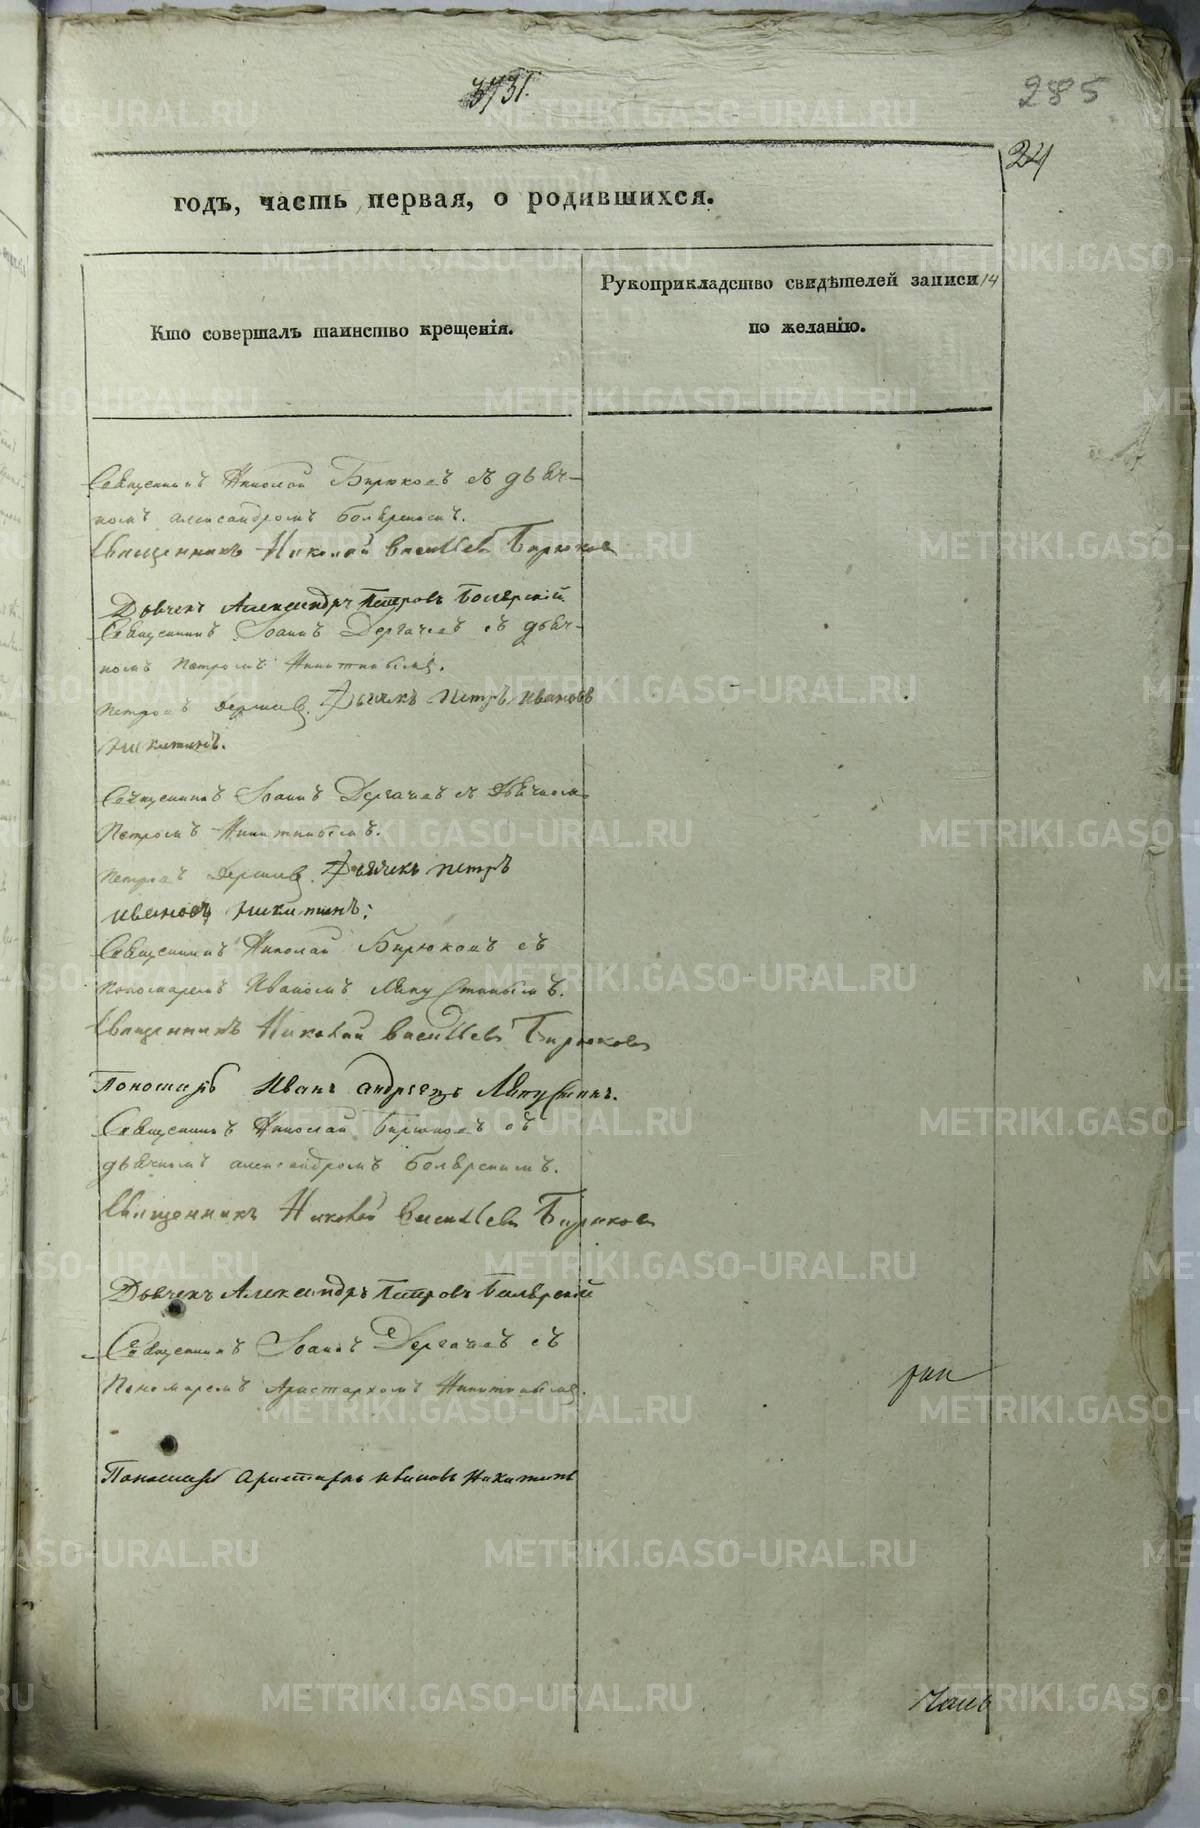 285
24
годъ, часть первая, о родившихся.
Кто совершалъ таинство крещенія.
Рукоприкладство свидѣтелей записи
по желанію.
14
Священникъ Николай Бирюковъ съ дьяч-
комъ Александромъ
Священникъ Николай Васильевъ Бирюковъ
Дьячекъ Александръ Петровъ
Священникъ Іоаннъ Дергачевъ съ дьяч-
комъ Петромъ Никитинымъ.
Дьячекъ Петръ Ивановъ
Никитинъ.
Священникъ Іоаннъ Дергачевъ съ дьячкомъ
Петромъ Никитинымъ.
Дьячекъ Петръ
Ивановъ Никитинъ;
Священникъ Николай Бирюковъ съ
пономаремъ Иваномъ Ляпустинымъ.
Священникъ Николай Васильевъ Бирюковъ
Пономарь Иванъ Андреевъ Ляпустинъ.
Священникъ Николай Бирюковъ съ
дьячкомъ Александромъ
Священникъ Николай Васильевъ Бирюковъ
Дьячекъ Александръ Петровъ
Священникъ Іоаннъ Дергачевъ съ
Пономаремъ Аристархомъ Никитинымъ.
Пономарь Аристархъ Ивановъ Никитинъ
METRIKI.GASO-URAL.RU